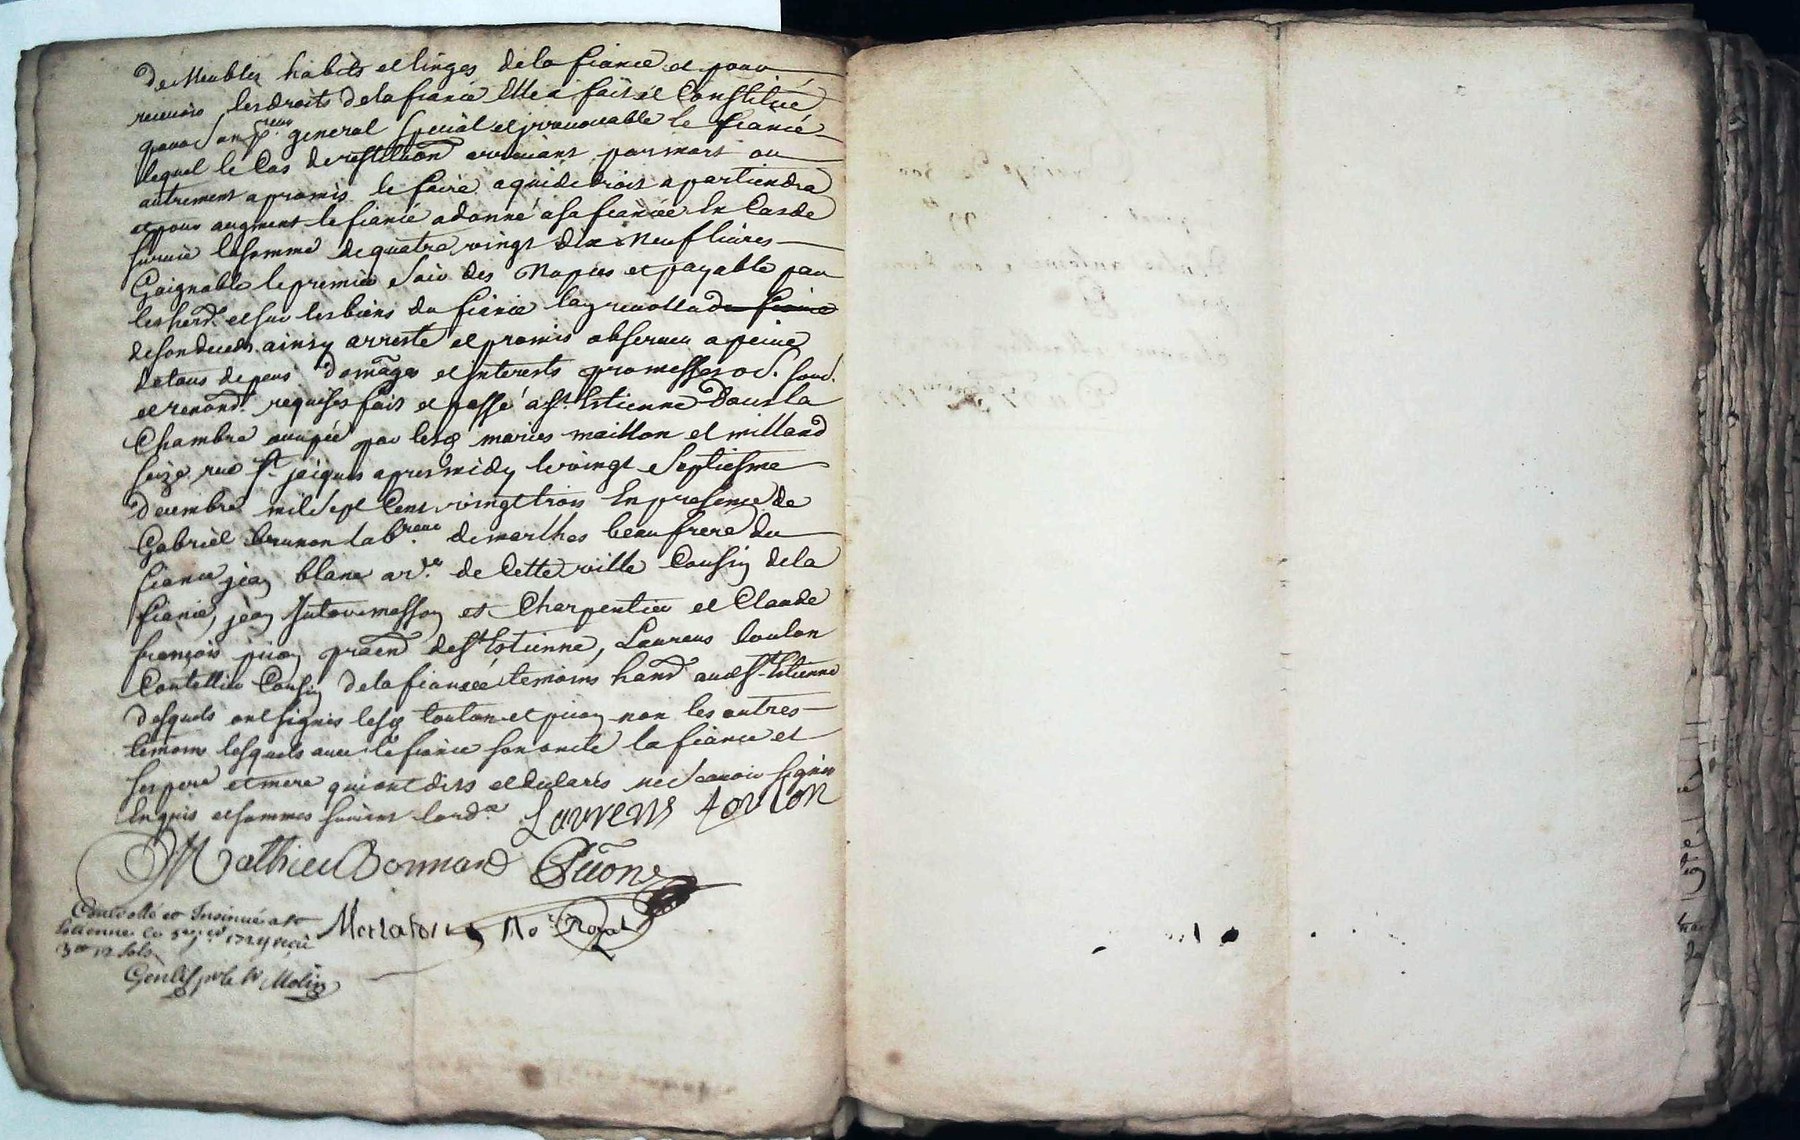 de Meubles habits et linges de la fiancé et pour
recevoir les droits de la fiancé Elle a fait et Constitué
pour son p.reur general special et jrrevocable le fiancé
lequel le Cas de restitu͠on arrivant par mort ou
autrement a promis le faire a qui de droit apartiendra
et pour augment le fiancé a donné a sa fiancée En Cas de
survie la somme de quatre vingt dix Neuf livres
Gaignable le premier soir des Nopces et payable par
les herd. et sur les biens du fiancé
de son deceds. ainsy arresté et promis observer a peine
de tous depens domages et interests promesses
et renond. requises fait et passé a St. Estienne Dans la
Chambre occupée par les maries et millard
size rue St. jacques apres midy le vingt septiesme
decembre mil sept Cent vingt trois En presence de
Gabriel brunon lab.reur de marlhes beau frere du
fiance jean blanc ar.er de Cette ville Cousin de la
fiancé, jean masson et Charpentier et Claude
françois picon pratn de St Estienne, Laurens toulon
Coutellier Cousin de la fiancée temoins hand audt St. Estienne
desquels ont signés lesd toulon et picon non les autres
temoins lesquels avec le fiancé la fiancée et
ses pere et mere qui ont dits et declarés ne scavoir signer
Enquis et sommes suivant lord.ce Laurens toulon
Mathieu Bonnard Picon
Controllé et Insinué a St
Estienne ce 5e 1724 receu
3tt 12 sols
Mo.re Royal
Gonley pr le Sr Molin